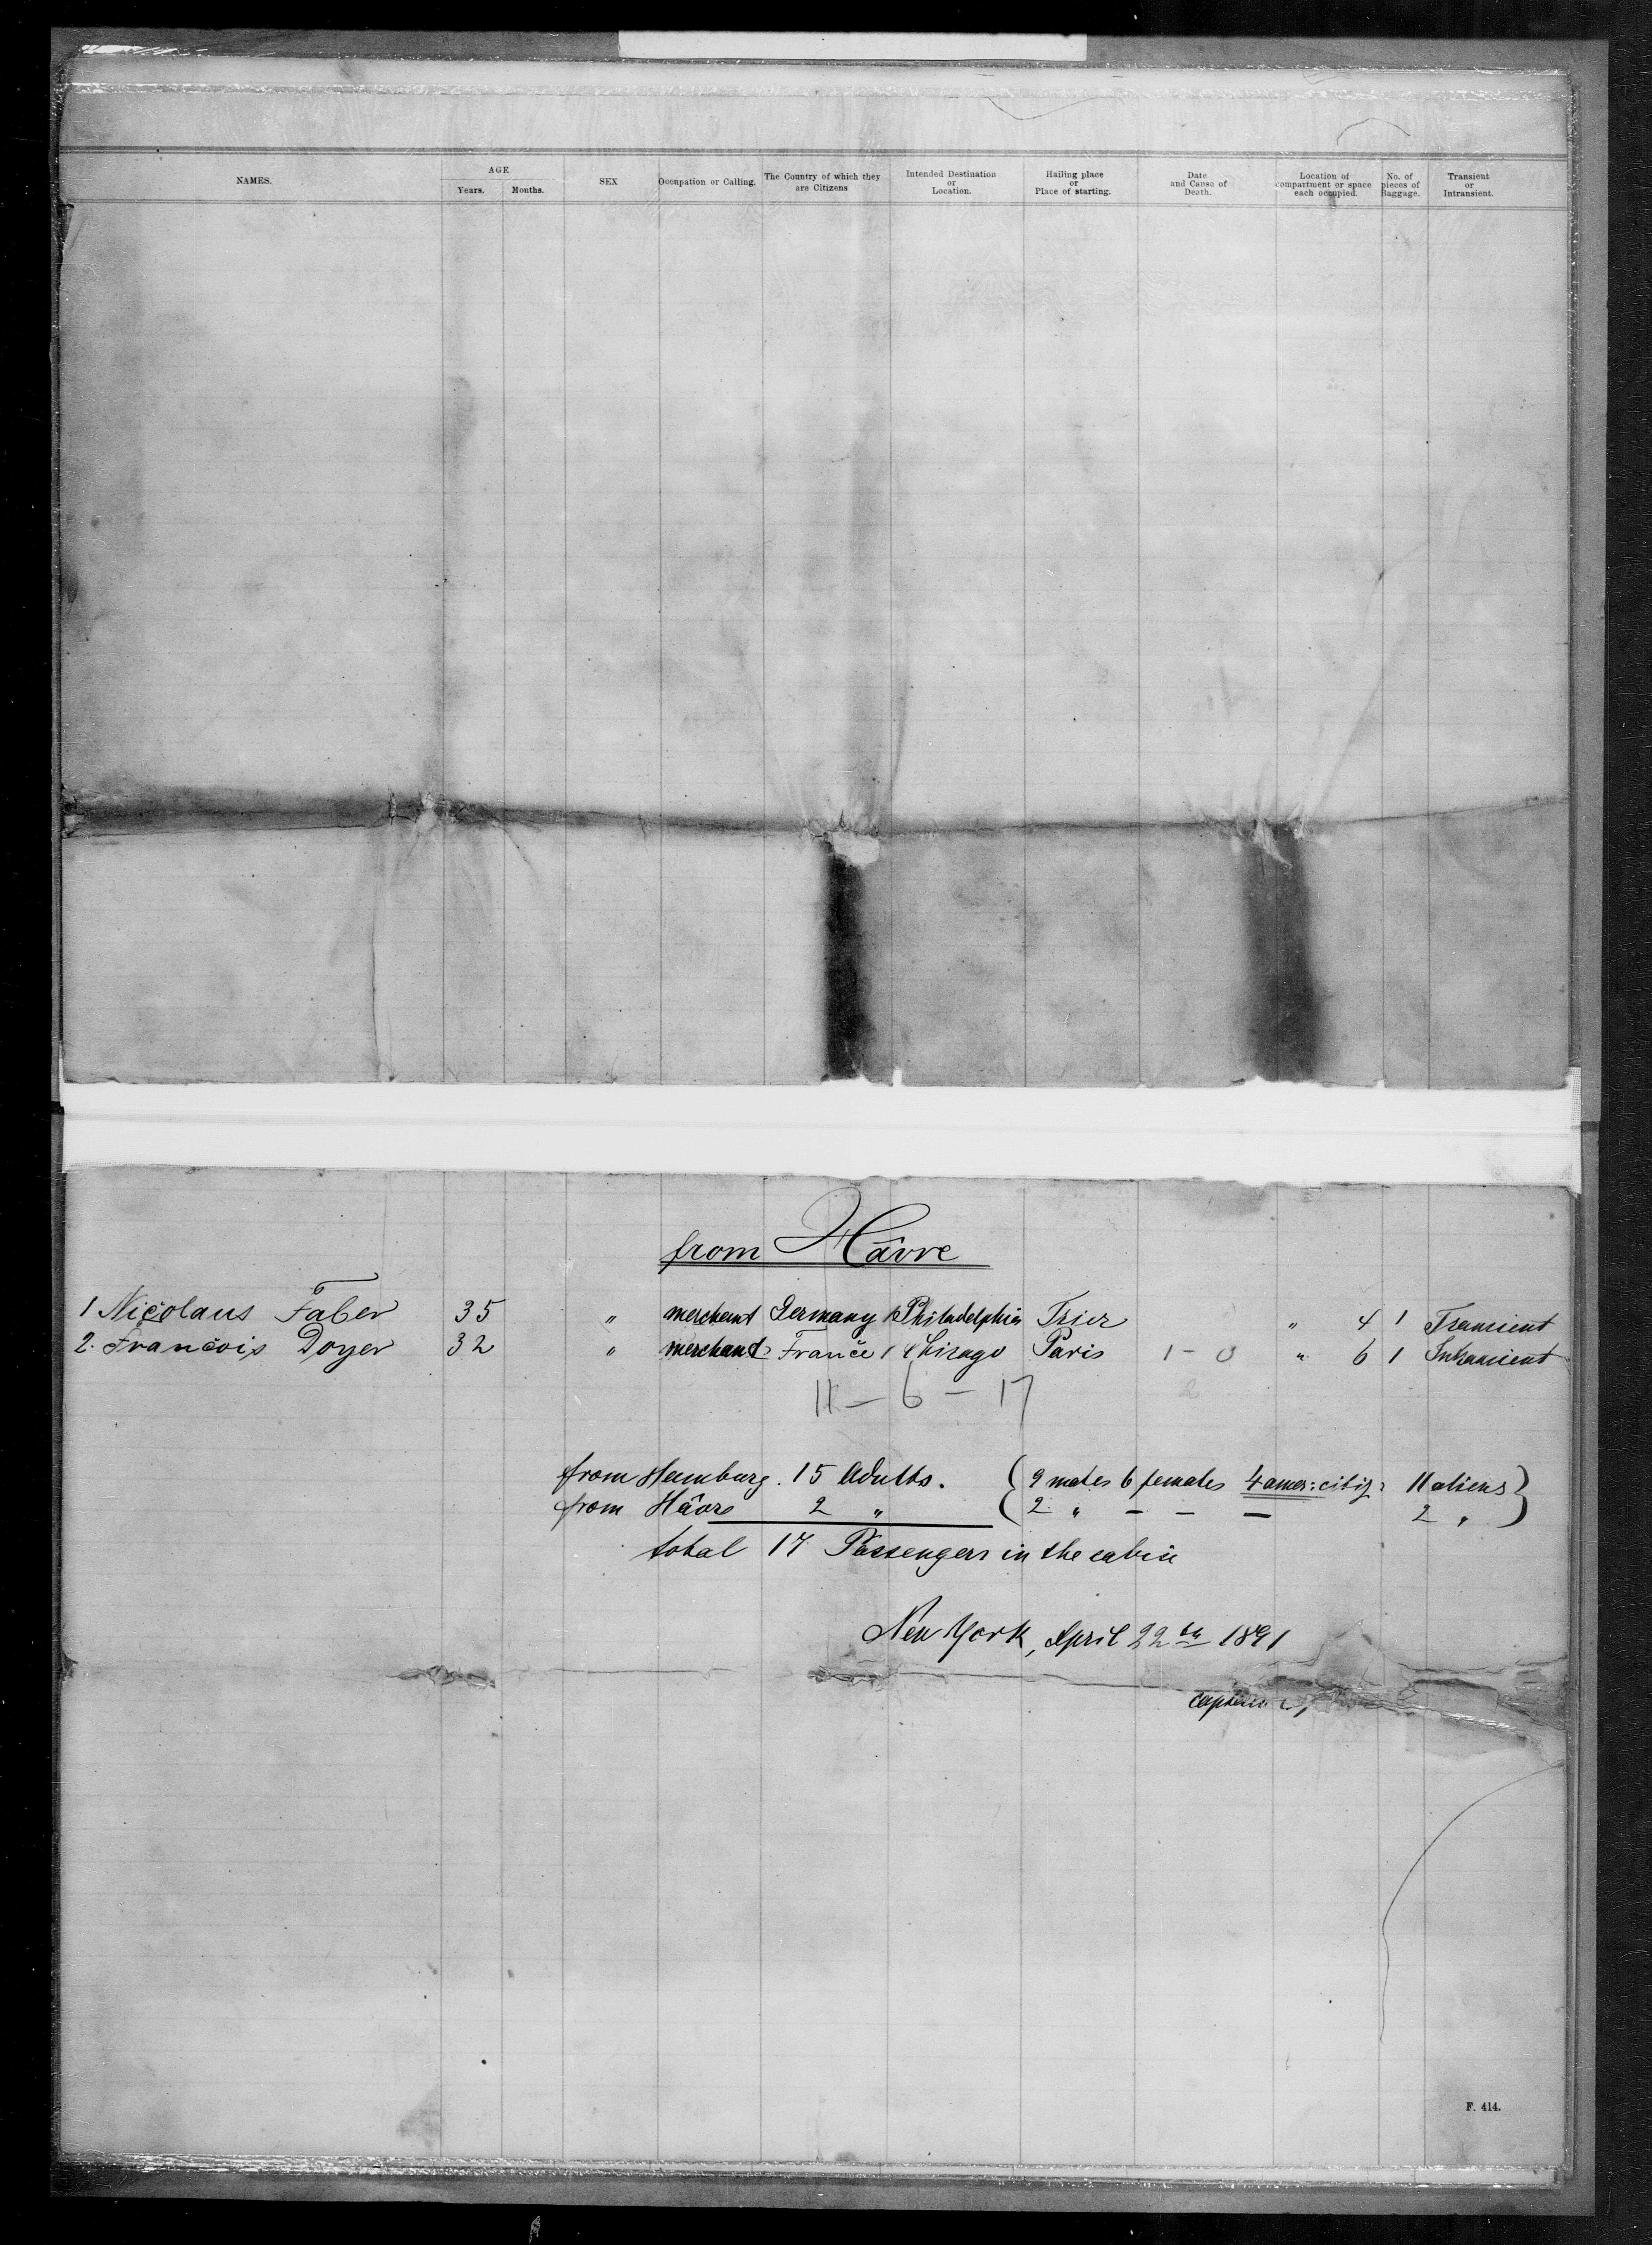 NAMES. AGE Years. Months. SEX Occupation or Calling. The Country of which they are Citizens Intended Destination or Location. Hailing place or Place of starting. Date and Cause of Death. Location of compartment or space each occupied. No. of pieces of Baggage. Transient or Intransient.
from Hâvre
1 Nicolaus Faber 35 " merchant Germany Philadelphia Trier " 4 1 Transient
2. Francois Doyer 32 " merchant France / Chicago Paris 1 - 0 " 6 1 Intransient
11 - 6 - 17 2
from Hamburg. 15 Adults. (9 males 6 females 4 amer: citiz: 11 aliens)
from Hâvre 2 " (2 " - - - 2 ")
total 17 Passengers in the cabin
New York, April 22th 1891
F. 414.